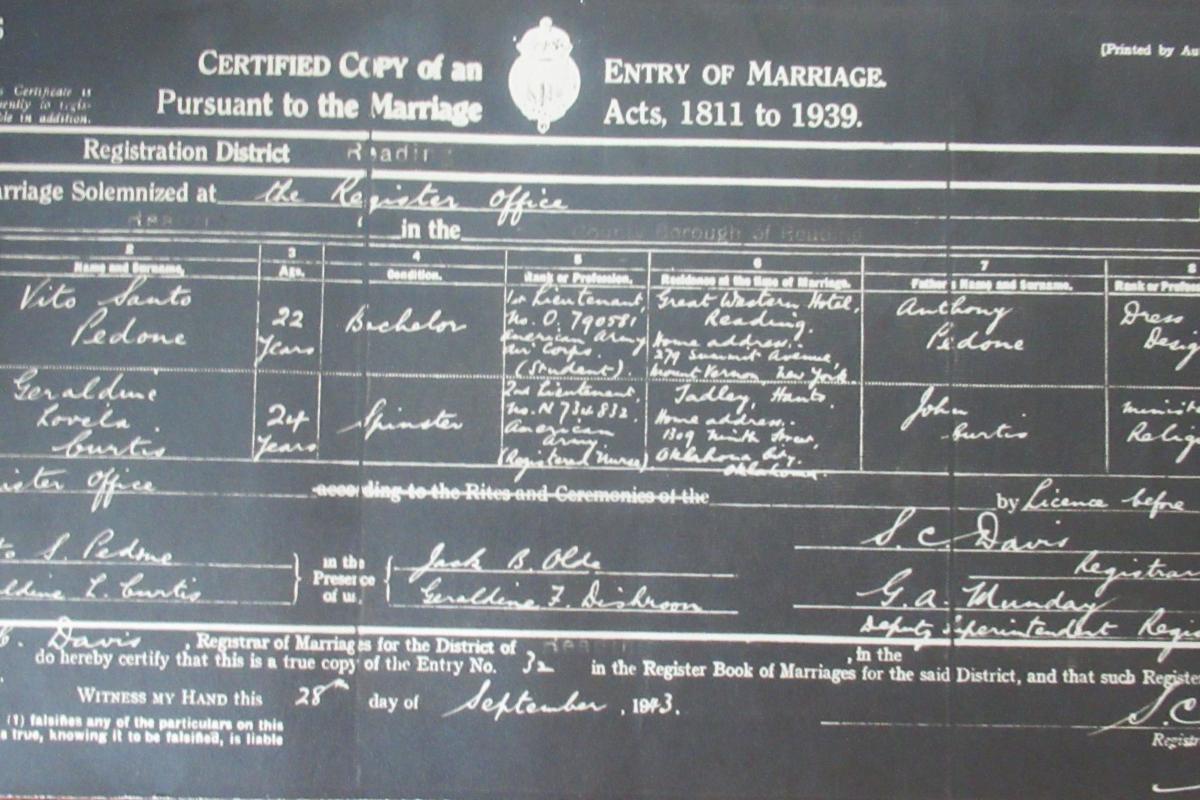 [Printed by Au
CERTIFIED COPY of an ENTRY OF MARRIAGE.
Pursuant to the Marriage Acts, 1811 to 1939.
s Certificate is
ently to regis-
ble in addition.
Registration District Reading
rriage Solemnized at the Register Office
in the County Borough of Reading
2 3 4 5 6 7 8
Name and Surname. Age. Condition. Rank or Profession. Residence at the time of Marriage. Father's Name and Surname. Rank or Profes
Vito Santo
Pedone
22
Years
Bachelor
1st Lieutenant,
No. O. 790581,
American Army
Air Corps.
(Student).
Great Western Hotel,
Reading.
Home address:
279 Summit Avenue,
Mount Vernon, New York.
Anthony
Pedone
Dress
Desig
Geraldine
Lovela
Curtis
24
Years
Spinster
2nd Lieutenant.
No. N 734832.
American
Army.
(Registered Nurse)
Tadley, Hants.
Home address:
1309 Ninth Street,
Oklahoma City.
Oklahoma.
John
Curtis
Minist
Relig
ister Office according to the Rites and Ceremonies of the by Licence before
to S. Pedone
ldine L. Curtis
in the
Presence
of us,
Jack B. Olds
Geraldine F. Dishroon
S. C. Davis
Registrar
G. A. Munday
Deputy Superintendent Regi
Davis, Registrar of Marriages for the District of Reading, in the
do hereby certify that this is a true copy of the Entry No. 32 in the Register Book of Marriages for the said District, and that such Register
WITNESS MY HAND this 28th day of September, 1943.
(1) falsifies any of the particulars on this
a true, knowing it to be falsified, is liable
S. C
Registr